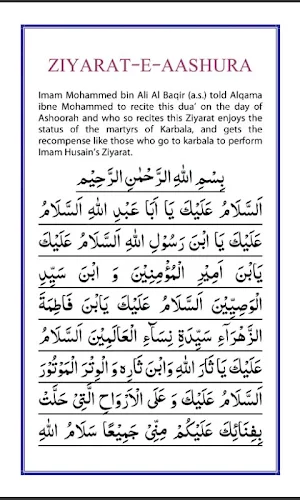 ZIYARAT-E-AASHURA
Imam Mohammed bin Ali Al Baqir (a.s.) told Alqama
ibne Mohammed to recite this dua' on the day of
Ashoorah and who so recites this Ziyarat enjoys the
status of the martyrs of Karbala, and gets the
recompense like those who go to karbala to perform
Imam Husain's Ziyarat.
بِسْمِ اللهِ الرَّحْمٰنِ الرَّحِيْمِ
اَلسَّلَامُ عَلَيْكَ يَا اَبَا عَبْدِ اللهِ اَلسَّلَامُ
عَلَيْكَ يَا ابْنَ رَسُوْلِ اللهِ اَلسَّلَامُ عَلَيْكَ
يَابْنَ اَمِيْرِ الْمُؤْمِنِيْنَ وَ ابْنَ سَيِّدِ
الْوَصِيِّيْنَ اَلسَّلَامُ عَلَيْكَ يَابْنَ فَاطِمَةَ
الزَّهْرَاۤءِ سَيِّدَةِ نِسَاۤءِ الْعَالَمِيْنَ اَلسَّلَامُ
عَلَيْكَ يَا ثَارَ اللهِ وَابْنَ ثَارِهٖ وَ الْوِتْرَ الْمَوْتُوْرَ
اَلسَّلَامُ عَلَيْكَ وَ عَلَى الْاَرْوَاحِ الَّتِيْ حَلَّتْ
بِفِنَاۤئِكَ عَلَيْكُمْ مِنِّيْ جَمِيْعًا سَلَامُ اللهِ